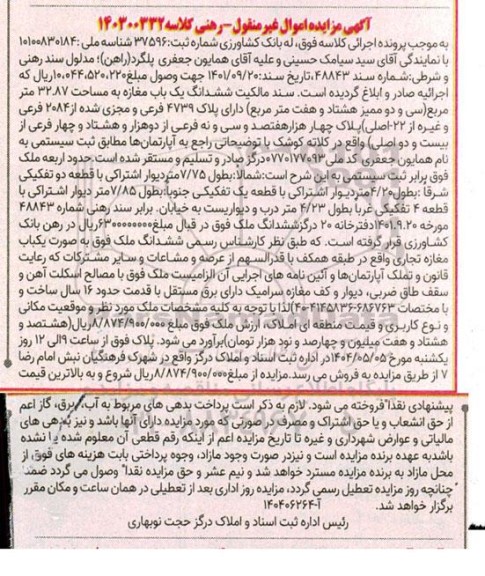 آگهی مزایده اموال غیر منقول-رهنی کلاسه ۱۴۰۳۰۰۳۳۲
به موجب پرونده اجرائی کلاسه فوق، له بانک کشاورزی شماره ثبت: ۳۷۵۹۶ شناسه ملی: ۱۰۱۰۰۸۳۰۱۸۴
با نمایندگی آقای سید سیامک حسینی و علیه آقای همایون جعفری پلگرد(راهن): مدلول سند رهنی
و شرطی: شماره سند ۴۸۸۴۳، تاریخ سند: ۱۴۰۱/۰۹/۲۰ جهت وصول مبلغ ۱۰،۰۴۴،۵۲۰،۲۲۰ ریال که
اجرائیه صادر و ابلاغ گردیده است. سند مالکیت ششدانگ یک باب مغازه به مساحت ۳۲.۸۷ متر
مربع(سی و دو ممیز هشتاد و هفت متر مربع) دارای پلاک ۴۷۳۹ فرعی و مجزی شده از ۲۰۸۴ فرعی
و غیره از ۲۲-اصلی)پلاک چهار هزارهفتصد و سی و نه فرعی از دوهزار و هشتاد و چهار فرعی از
بیست و دو اصلی) واقع در کلاته کوشک با توضیحاتی راجع به آپارتمان‌ها مطابق ثبت سیستمی به
نام همایون جعفری کد ملی ۰۷۷۰۱۷۷۰۹۳ درگز صادر و تسلیم و مستقر شده است. حدود اربعه ملک
فوق برابر ثبت سیستمی به این شرح است: شمالا: بطول ۷/۷۵ متردیوار اشتراکی با قطعه دو تفکیکی
شرقا: بطول ۴/۲۰ متردیوار اشتراکی با قطعه یک تفکیکی جنوبا: بطول ۷/۸۵ متر دیوار اشتراکی با
قطعه ۴ تفکیکی غربا بطول ۴/۲۳ متر درب و دیواریست به خیابان. برابر سند رهنی شماره ۴۸۸۴۳
مورخه ۱۴۰۱.۹.۲۰ دفترخانه ۲۰ درگز ششدانگ ملک فوق در قبال مبلغ ۶۳۰۰۰۰۰۰۰۰ ریال در رهن بانک
کشاورزی قرار گرفته است. که طبق نظر کارشناس رسمی ششدانگ ملک فوق به صورت یکباب
مغازه تجاری واقع در طبقه همکف با قدرالسهم از عرصه و مشاعات و سایر مشترکات که رعایت
قانون و تملک آپارتمان‌ها و آئین نامه های اجرایی آن الزامیست ملک فوق با مصالح اسکلت آهن و
سقف طاق ضربی، دیوار و کف مغازه سرامیک دارای برق مستقل با قدمت حدود ۱۶ سال ساخت و
با مختصات ۶۸۶۷۶۳-۴۱۴۵۸۳۶) لذا با توجه به کلیه مشخصات ملک مورد نظر و موقعیت مکانی
و نوع کاربری و قیمت منطقه ای املاک، ارزش ملک فوق مبلغ ۸/۸۷۴/۹۰۰/۰۰۰ ریال(هشتصد و
هشتاد و هفت میلیون و چهارصد و نود هزار تومان)برآورد می شود. پلاک فوق از ساعت ۹ الی ۱۲ روز
یکشنبه مورخ ۱۴۰۴/۰۵/۰۵ در اداره ثبت اسناد و املاک درگز واقع در شهرک فرهنگیان نبش امام رضا
۷ از طریق مزایده به فروش می رسد. مزایده از مبلغ ۸/۸۷۴/۹۰۰/۰۰۰ ریال شروع و به بالاترین قیمت
پیشنهادی نقدا فروخته می شود. لازم به ذکر است پرداخت بدهی های مربوط به آب، برق، گاز اعم
از حق انشعاب و یا حق اشتراک و مصرف در صورتی که مورد مزایده دارای آنها باشد و نیز بدهی های
مالیاتی و عوارض شهرداری و غیره تا تاریخ مزایده اعم از اینکه رقم قطعی آن معلوم شده یا نشده
باشد به عهده برنده مزایده است و نیز در صورت وجود مازاد، وجوه پرداختی بابت هزینه های فوق از
محل مازاد به برنده مزایده مسترد خواهد شد و نیم عشر و حق مزایده نقدا وصول می گردد ضمنا
چنانچه روز مزایده تعطیل رسمی گردد، مزایده روز اداری بعد از تعطیلی در همان ساعت و مکان مقرر
برگزار خواهد شد. آ-۱۴۰۴۰۶۲۶۴
رئیس اداره ثبت اسناد و املاک درگز حجت نوبهاری